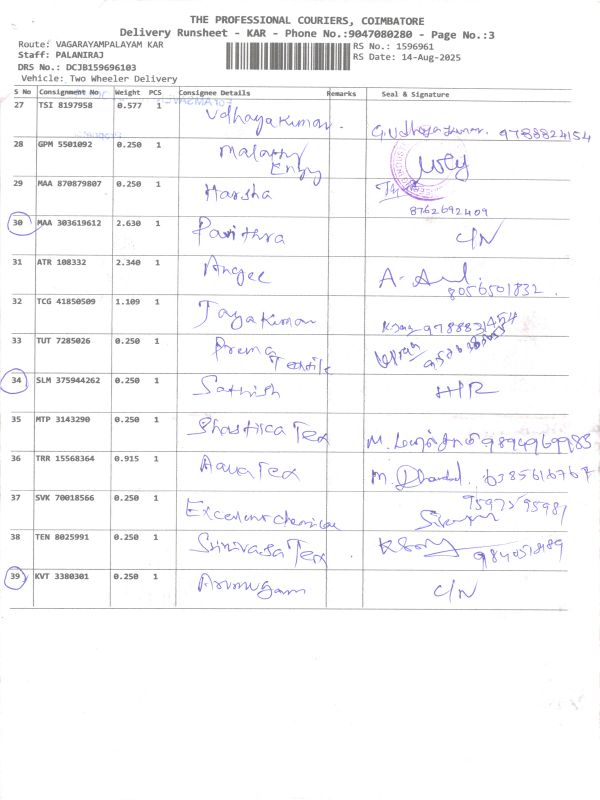 THE PROFESSIONAL COURIERS, COIMBATORE
Delivery Runsheet - KAR - Phone No.:9047080280 - Page No.:3
Route: VAGARAYAMPALAYAM KAR RS No.: 1596961
Staff: PALANIRAJ RS Date: 14-Aug-2025
DRS No.: DCJB159696103
Vehicle: Two Wheeler Delivery
S No Consignment No Weight PCS Consignee Details Remarks Seal & Signature
27 TSI 8197958 0.577 1 Udhayakumar. G.Udhayakumar. 9788824154
28 GPM 5501092 0.250 1 Malathy
Engg
29 MAA 870879807 0.250 1 Harsha
8762692409
30 MAA 303619612 2.630 1 Pavithra C/N
31 ATR 108332 2.340 1 Angel A-
8056501832.
32 TCG 41850509 1.109 1 Jayakumar
33 TUT 7285026 0.250 1 Prema
Textile
34 SLM 375944262 0.250 1 Sathish H/R
35 MTP 3143290 0.250 1 Bhastica Tex M. 9894969983
36 TRR 15568364 0.915 1 Aqua Tex M.
37 SVK 70018566 0.250 1 Excellent chemical
38 TEN 8025991 0.250 1 Srinivasa Tex
39 KVT 3380301 0.250 1 Arumugam C/N